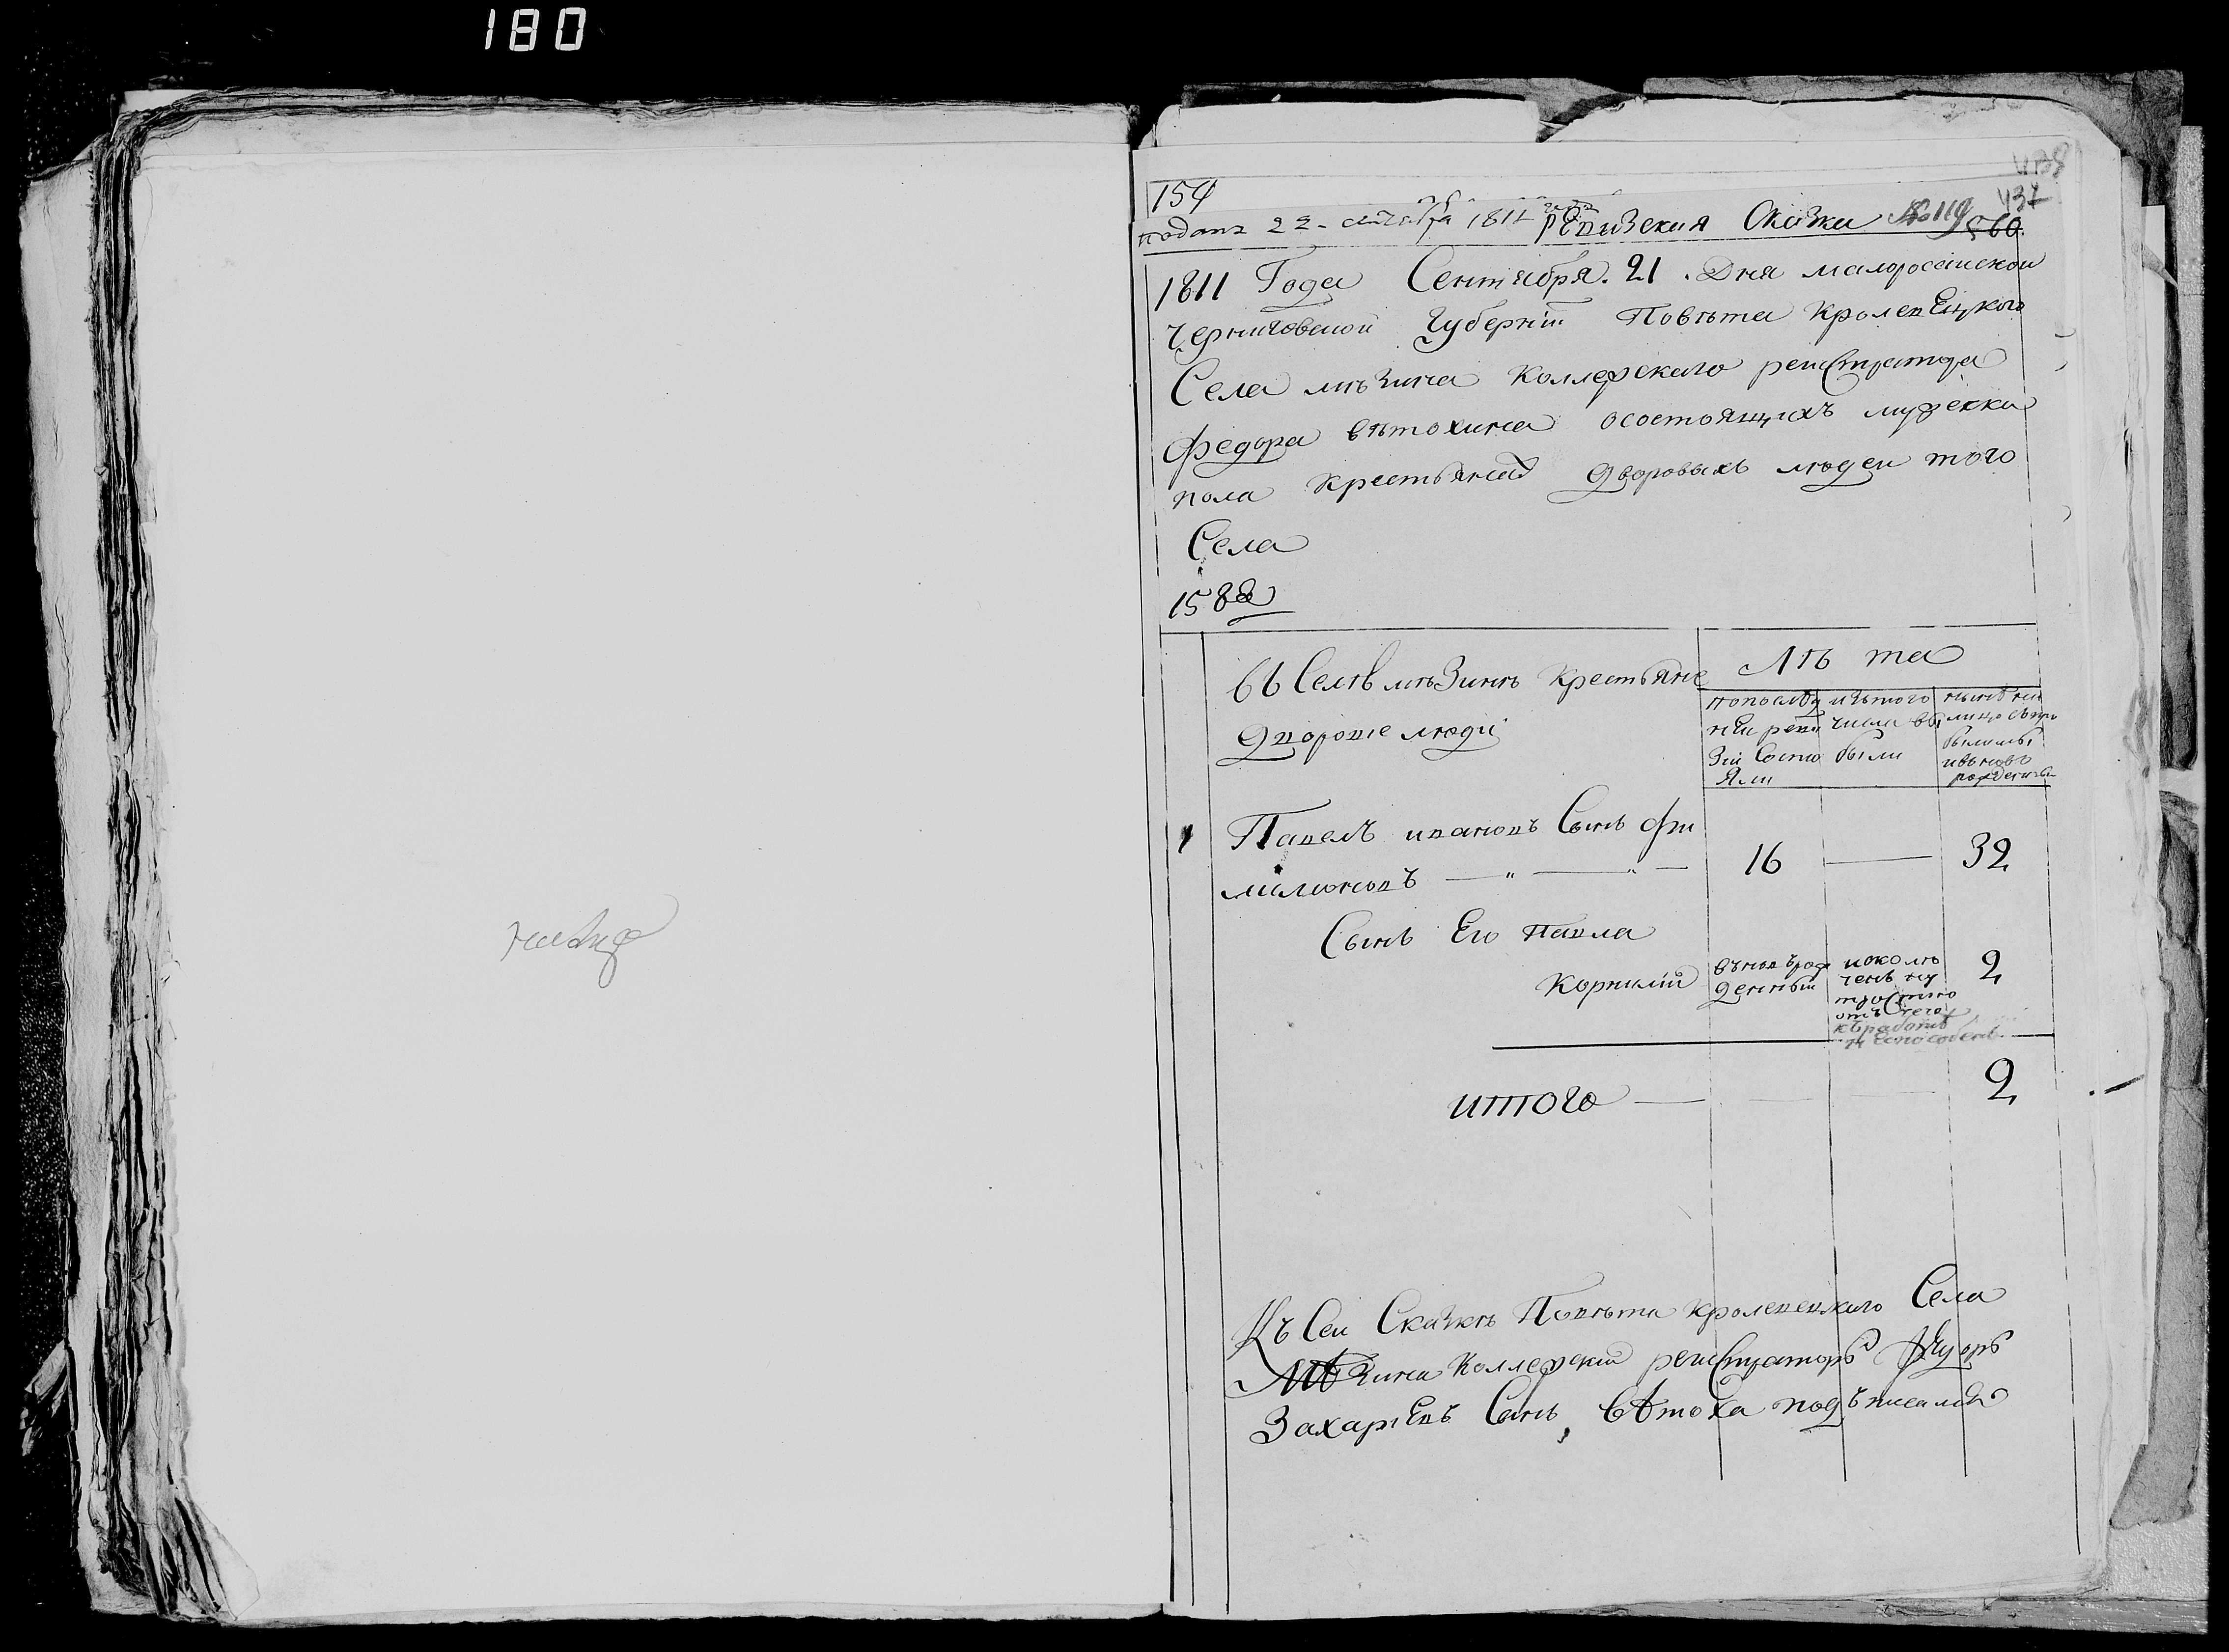 180
438
437
154
подана 22 сентября 1811 года Ревизская Скаска № 119 560
1811 Года Сентября. 21. Дня малоросѣиской
черниговской Губернїи Повѣта Кролевецкого
Села мѣзина Коллежскаго реистратора
федора вѣтохина осостоящихъ мужеска
пола крестьянад дворовыхъ людеи того
Села
1588
вь Селѣ мѣзинѣ крестьяне
дворовие люди
Лѣ та
попослѣд
неи реви
зїи Состо
яли
изьтого
числа вы
были
нынѣ на
лицо
1 Павелъ ивановъ Сынъ фи
лимоновъ 16 — 32
Сынъ Его Павла
Корнилїй вьновъ рож
денный 2
отъ чего
кьработѣ
неспособенъ
итого — 2
Къ Сеи Сказкѣ Повѣта кролевецкаго Села
Мѣзина Коллежский реистраторъ Федоръ
Захариевъ Сынъ, вѣтоха подъписался